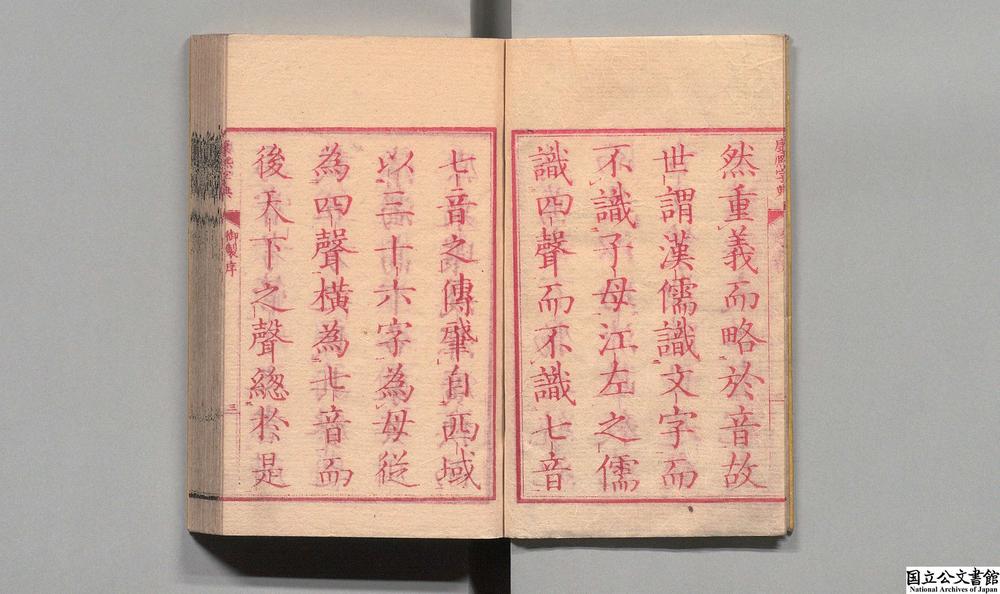 康熙字典
然重義而略於音故
世謂漢儒識文字而
不識子母江左之儒
識四聲而不識七音
七音之傳肇自西域
以三十六字為母從
為四聲橫為七音而
後天下之聲緫於是
康熙字典
御製序
三
国立公文書館
National Archives of Japan